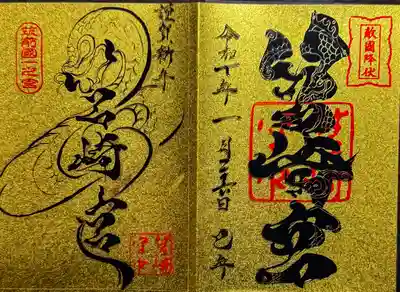 敵國降伏
筥崎宮
令和七年一月 巳年
謹賀新年
筥崎宮
筑前國一之宮